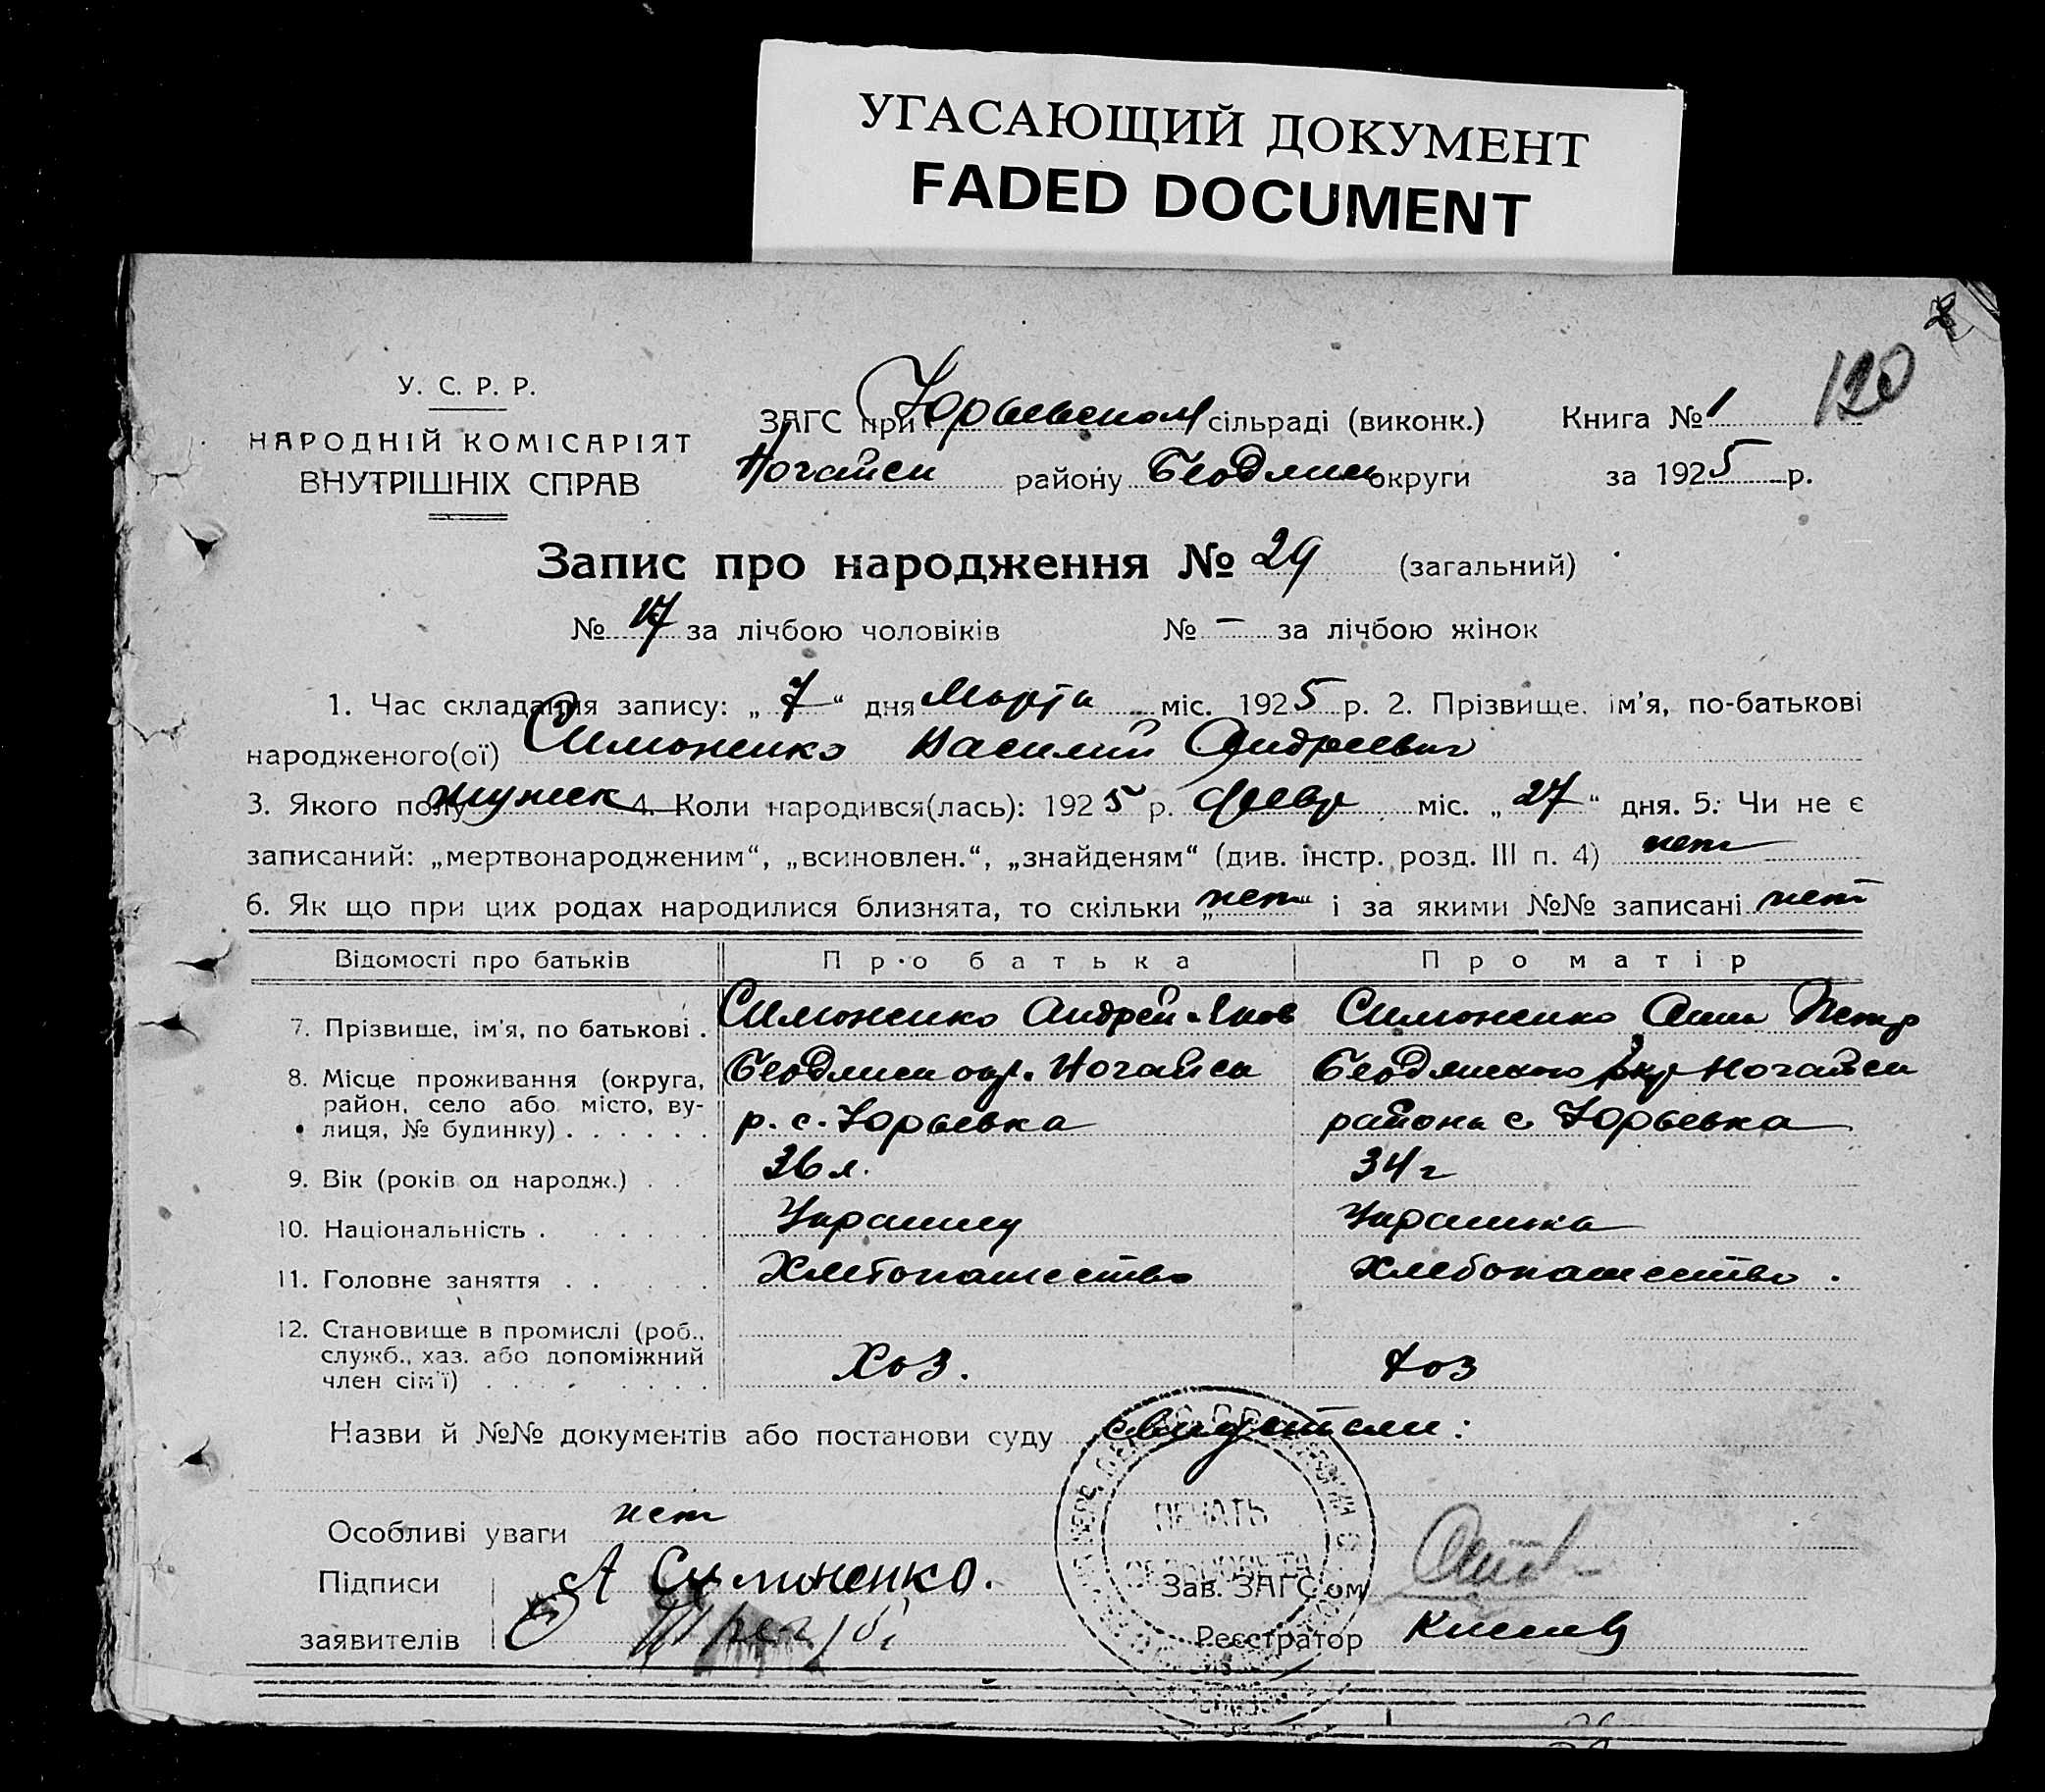 УГАСАЮЩИЙ ДОКУМЕНТ
FADED DOCUMENT
120
У. С. Р. Р.
НАРОДНІЙ КОМІСАРІЯТ
ВНУТРІШНІХ СПРАВ
ЗАГС при Юрьевском сільраді (виконк.) Книга № 1
Ногайск району Бердянск округи за 1925 р.
Запис про народження № 29 (загальний)
№ 17 за лічбою чоловіків № — за лічбою жінок
1. Час складання запису: „7“ дня Марта міс. 1925 р. 2. Прізвище, ім'я, по-батькові
народженого(ої) Симоненко Василий Андреевич
3. Якого полу мужск 4. Коли народився(лась): 1925 р. февр міс. „27“ дня. 5. Чи не є
записаний: „мертвонародженим“, „всиновлен.“, „знайденям“ (див. інстр. розд. III п. 4) нет
6. Як що при цих родах народилися близнята, то скільки „нет“ і за якими №№ записані нет
Відомості про батьків Про батька Про матір
7. Прізвище, ім'я, по батькові . Симоненко Андрей Яков Симоненко Анна Петр
8. Місце проживання (округа, Бердянск окр. Ногайск Бердянского окр Ногайск
район, село або місто, ву-
лиця, № будинку) . . . . . . р. с. Юрьевка района с Юрьевка
9. Вік (років од народж.) . . 36 л. 34 г
10. Національність . . . . . . Украинец Украинка
11. Головне заняття . . . . . Хлебопашество Хлебопашество .
12. Становище в промислі (роб.,
служб., хаз. або допоміжний
член сім'ї) . . . . . . . . . Хоз. Хоз
Назви й №№ документів або постанови суду свидетели:
ПЕЧАТЬ
СЕЛЬСОВЕТА
Особливі уваги нет
Підписи А Симоненко. Зав. ЗАГС'ом
заявителів Реєстратор